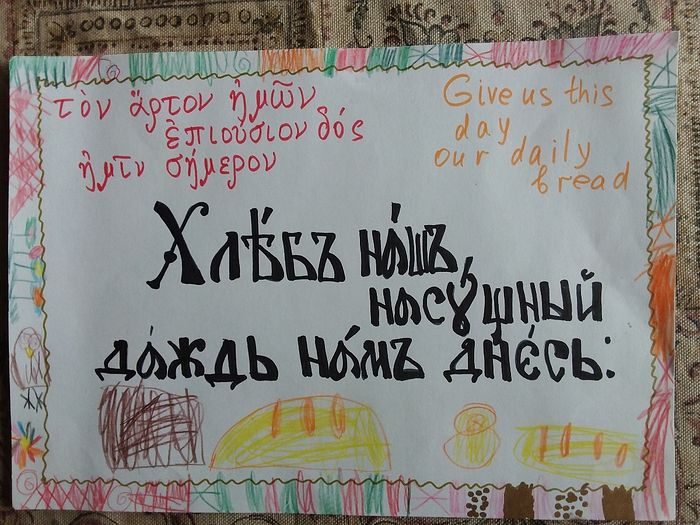 τὸν ἄρτον ἡμῶν
ἐπιούσιον δός
ἡμῖν σήμερον
Give us this
day
our daily
bread
Хлѣ́бъ на́шъ
насꙋ́щный
да́ждь на́мъ днє́сь: